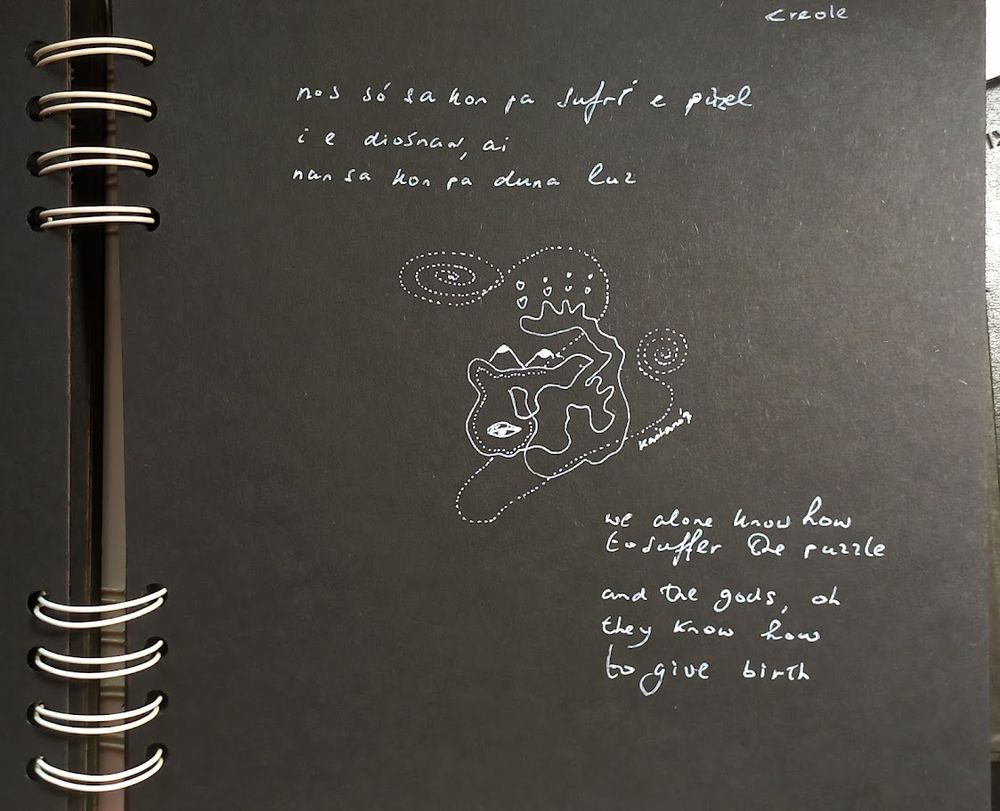 Creole
nos só sa kon pa sufri e pùzel
i e diosnan, ai
nan sa kon pa duna luz
we alone know how
to suffer the puzzle
and the gods, oh
they know how
to give birth